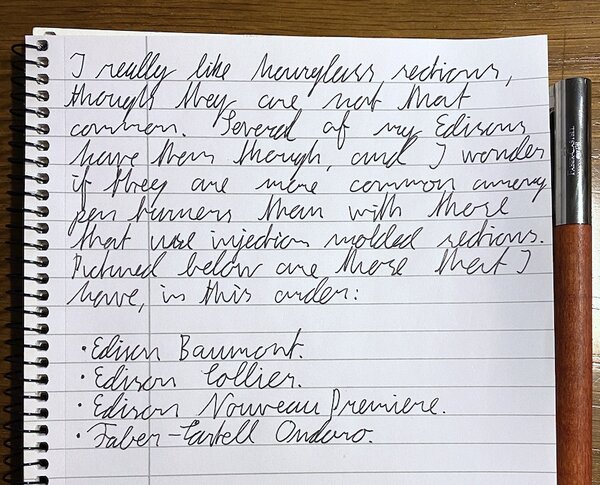 I really like hourglass sections,
though they are not that
common. Several of my Edisons
have them though, and I wonder
if they are more common among
pen turners than with those
that use injection molded sections.
Pictured below are those that I
have, in this order:
· Edison Beaumont.
· Edison Collier.
· Edison Nouveau Premiere.
· Faber-Castell Ondoro.